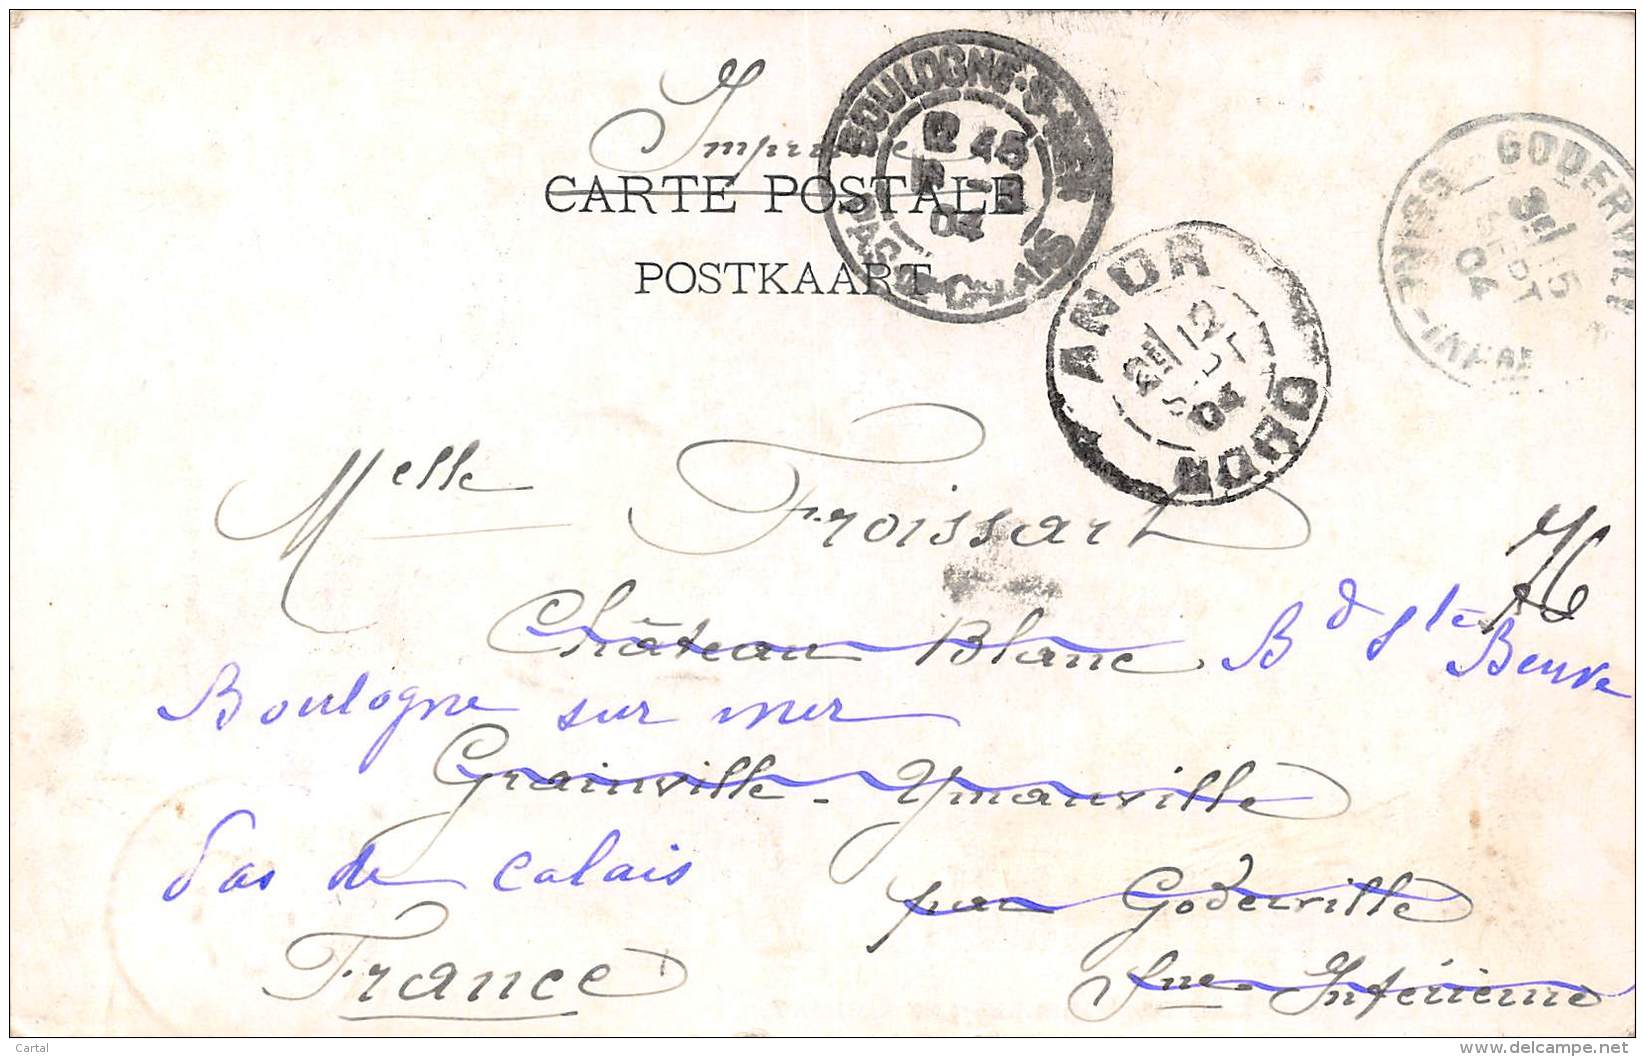 Imprimé
CARTE POSTALE
POSTKAART
BOULOGNE-S-MER
PAS-DE-CALAIS
04
GODERVILLE
SEINE-INFRE
15
SEPT
04
ANOR
NORD
04
Melle Froissart
Château Blanc Bd Ste Beuve
Boulogne sur mer
Grainville-Ymauville
Pas de Calais
par Goderville
France
Sne Inférieure
Cartal
www.delcampe.net